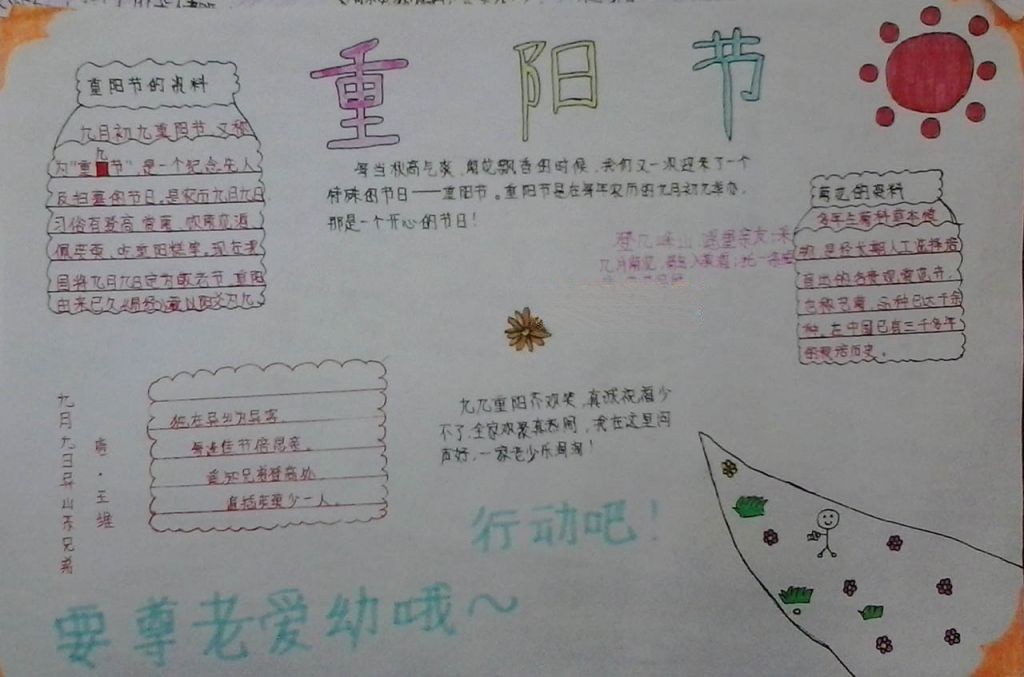 重阳节
重阳节的资料
九月初九重阳节,又称
为"重九节",是一个纪念先人
及扫墓的节日,是农历九月九日
习俗有登高 赏菊
佩茱萸,吃重阳糕等。现在我
国将九月九日定为敬老节 重阳
由来已久
每当秋高气爽、菊花飘香的时候,我们又一次迎来了一个
特殊的节日——重阳节。重阳节是在每年农历的九月初九举办,
那是一个开心的节日!
菊花的资料
多年生菊科草本植
物,是经长期人工选择培
育出的名贵观赏花卉,
也称艺菊,品种已达千余
种,在中国已有三千多年
的栽培历史。
九月九日忆山东兄弟
唐·王维
独在异乡为异客,
每逢佳节倍思亲。
遥知兄弟登高处,
遍插茱萸少一人。
九九重阳齐欢笑,真诚祝福少
不了,全家欢聚真热闹,我在这里问
声好,一家老少乐淘淘!
行动吧!
要尊老爱幼哦~